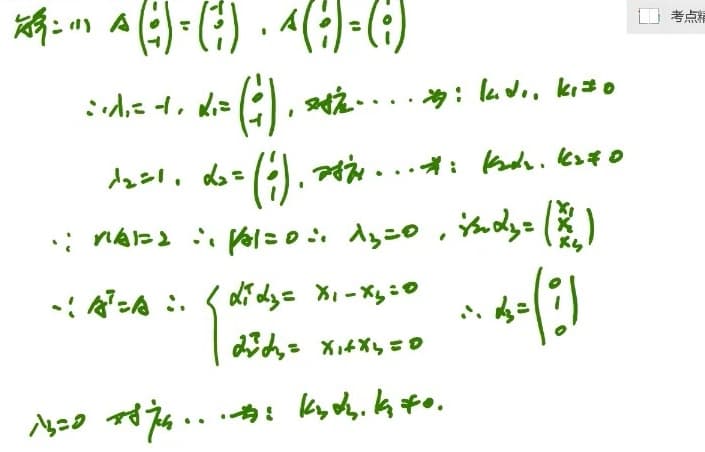 考点精
解：(1) A(1 0 -1) = (-1 0 1) , A(1 0 1) = (1 0 1)
∴ λ₁ = -1, α₁ = (1 0 -1), 对应····为: k₁α₁, k₁≠0
λ₂ = 1, α₂ = (1 0 1), 对应···为: k₂α₂, k₂≠0
∵ r(A)=2 ∴ |A|=0 ∴ λ₃=0, 设α₃ = (x₁ x₂ x₃)
∵ Aᵀ=A ∴ { α₁ᵀα₃ = x₁-x₃=0
α₂ᵀα₃ = x₁+x₃=0
∴ α₃ = (0 1 0)
λ₃=0 对应··为: k₃α₃, k₃≠0.